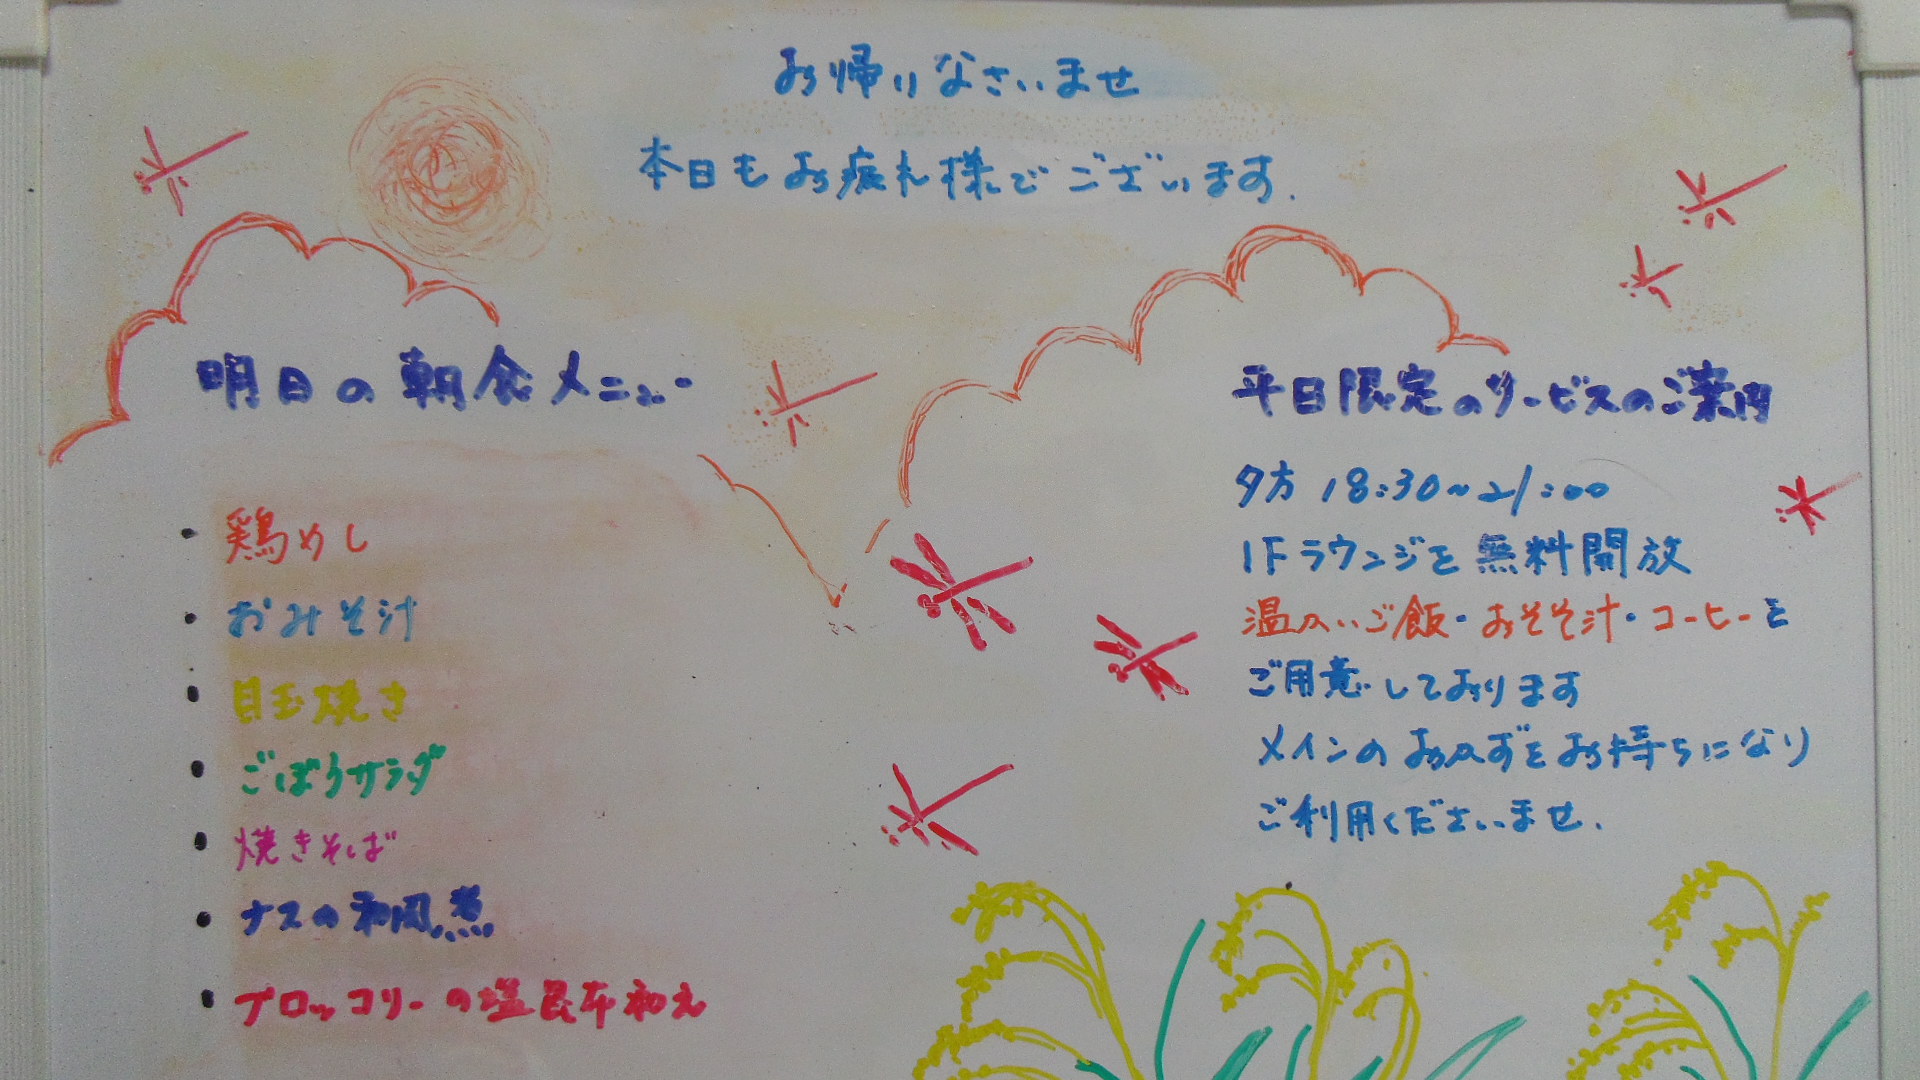 お帰りなさいませ
本日もお疲れ様でございます.
明日の朝食メニュー
・鶏めし
・おみそ汁
・目玉焼き
・ごぼうサラダ
・焼きそば
・ナスの和風煮
・ブロッコリーの塩昆布和え
平日限定のサービスのご案内
夕方 18:30~21:00
1Fラウンジを無料開放
温かいご飯・おみそ汁・コーヒーを
ご用意しております
メインのおかずをお持ちになり
ご利用くださいませ.